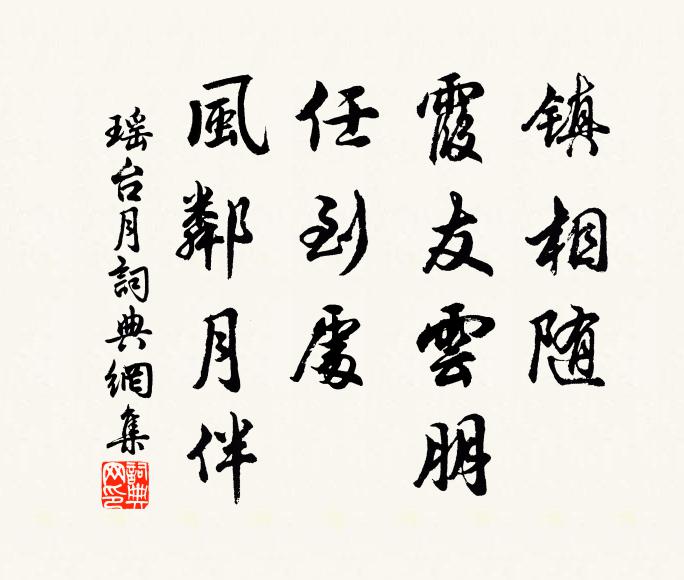 鎮相随
霞友雲朋
任到處
風鄰月伴
瑶台月詞典網集
詞典网印